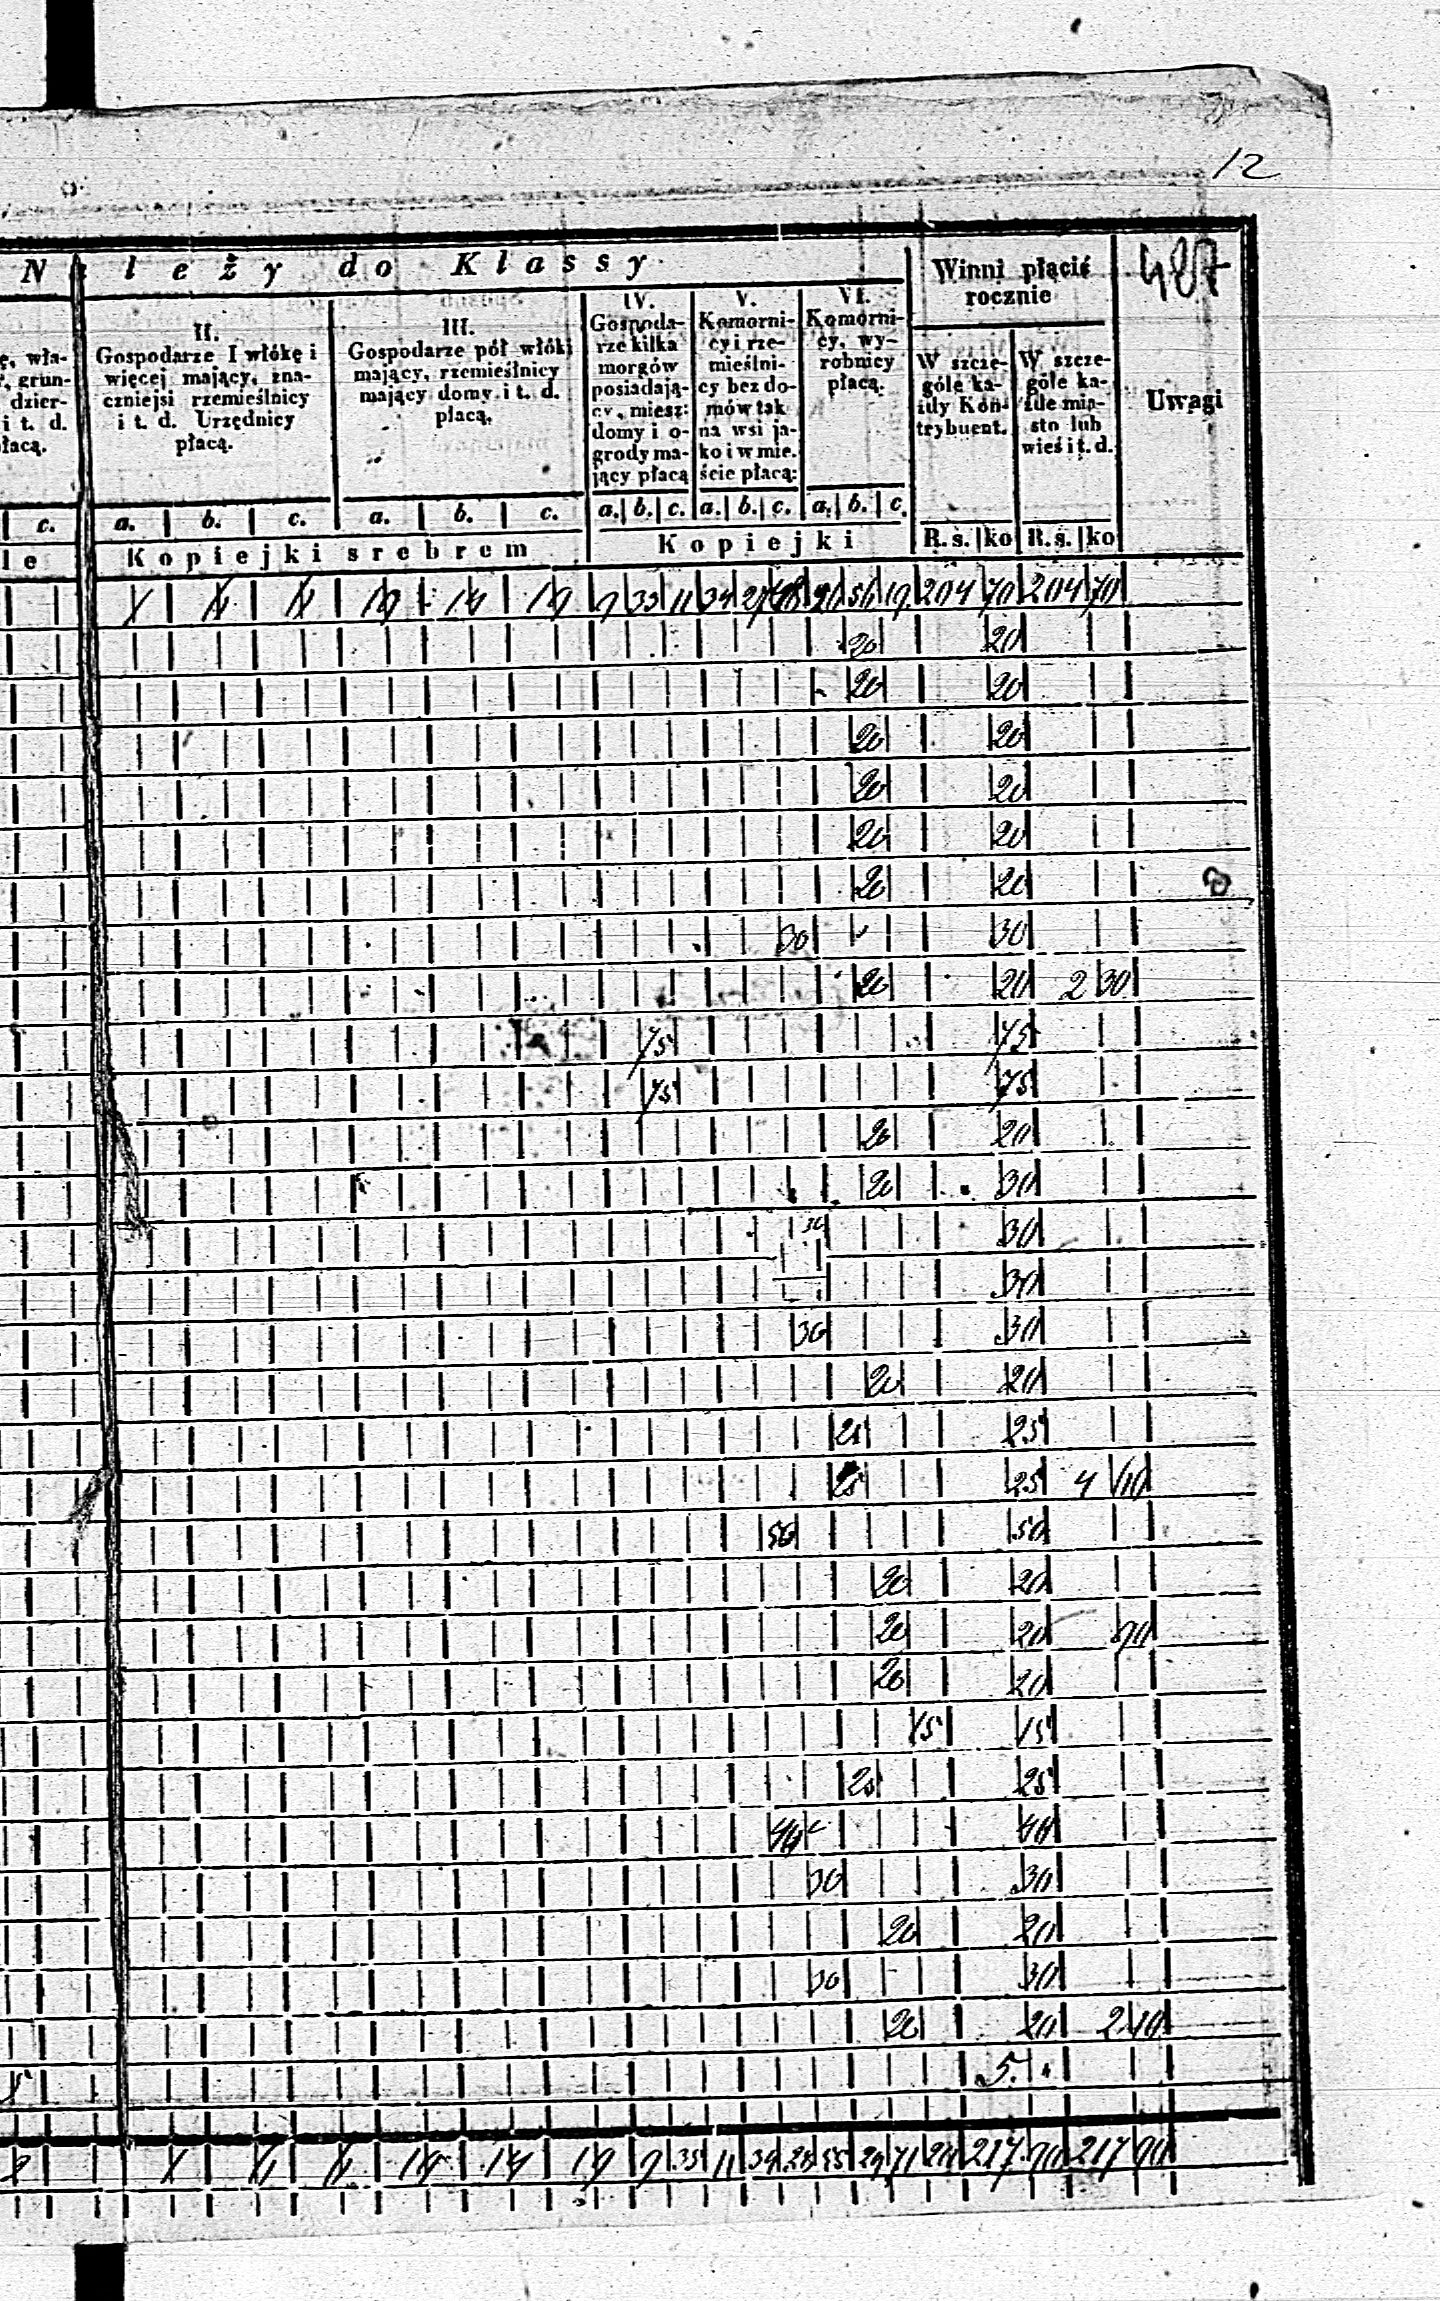 12
Należy do Klassy
Winni płącić rocznie
487
ę, wła-
, grun-
dzier-
i t. d.
łacą.
II.
Gospodarze I włókę i
więcej mający, zna-
czniejsi rzemieślnicy
i t. d. Urzędnicy
płacą.
III.
Gospodarze pół włóki
mający, rzemieślnicy
mający domy i t. d.
płacą.
IV.
Gospoda-
rze kilka
morgów
posiadają-
cy, miesz:
domy i o-
grody ma-
jący płacą
V.
Komorni-
cy i rze-
mieślni-
cy bez do-
mów tak
na wsi ja-
ko i w mie-
ście płacą:
VI.
Komorni-
cy, wy-
robnicy
płacą.
W szcze-
góle ka-
żdy Kon-
trybuent.
W szcze-
góle ka-
żde mia-
sto lub
wieś i t. d.
Uwagi
c. a. b. c. a. b. c. a. b. c. a. b. c. a. b. c.
le Kopiejki srebrem Kopiejki R. s. ko R. s. ko
33 11 34 204 70 204 70
20 20
20 20
20 20
20 20
20 20
20 20
30 30
20 20 2 30
75 75
75 75
20 20
20 30
30 30
30
30 30
20 20
25 25
25 25 4 10
50 50
20 20
20 20 90
20 20
15 15
25 25
40 40
30 30
20 20
30 30
20 20 2 40
5
35 11 34 28 55 29 71 20 217 90 217 90